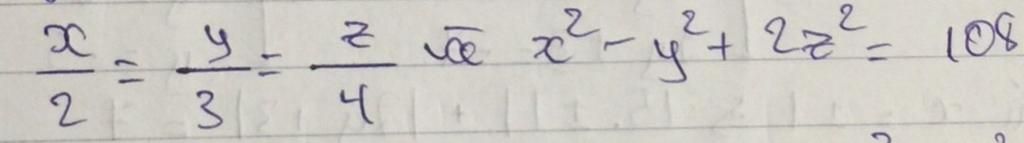 x/2 = y/3 = z/4 và x² - y² + 2z² = 108